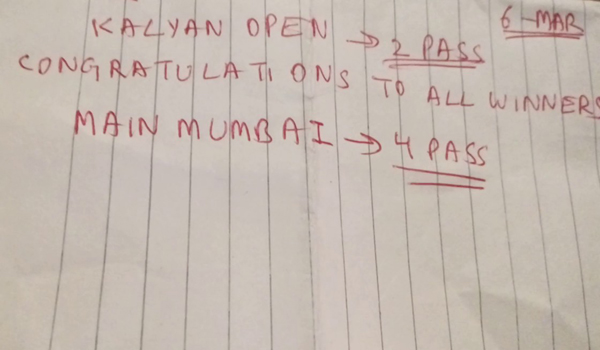 6 - MAR
KALYAN OPEN → 2 PASS
CONGRATULATIONS TO ALL WINNERS
MAIN MUMBAI → 4 PASS